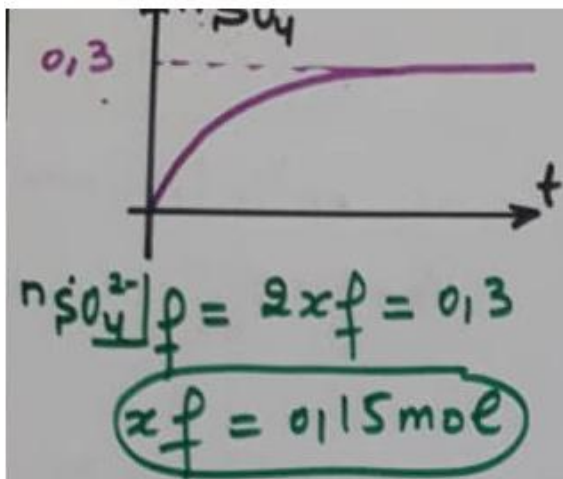 SO₄
0,3
t
nSO₄²⁻]f = 2xf = 0,3
xf = 0,15 mol